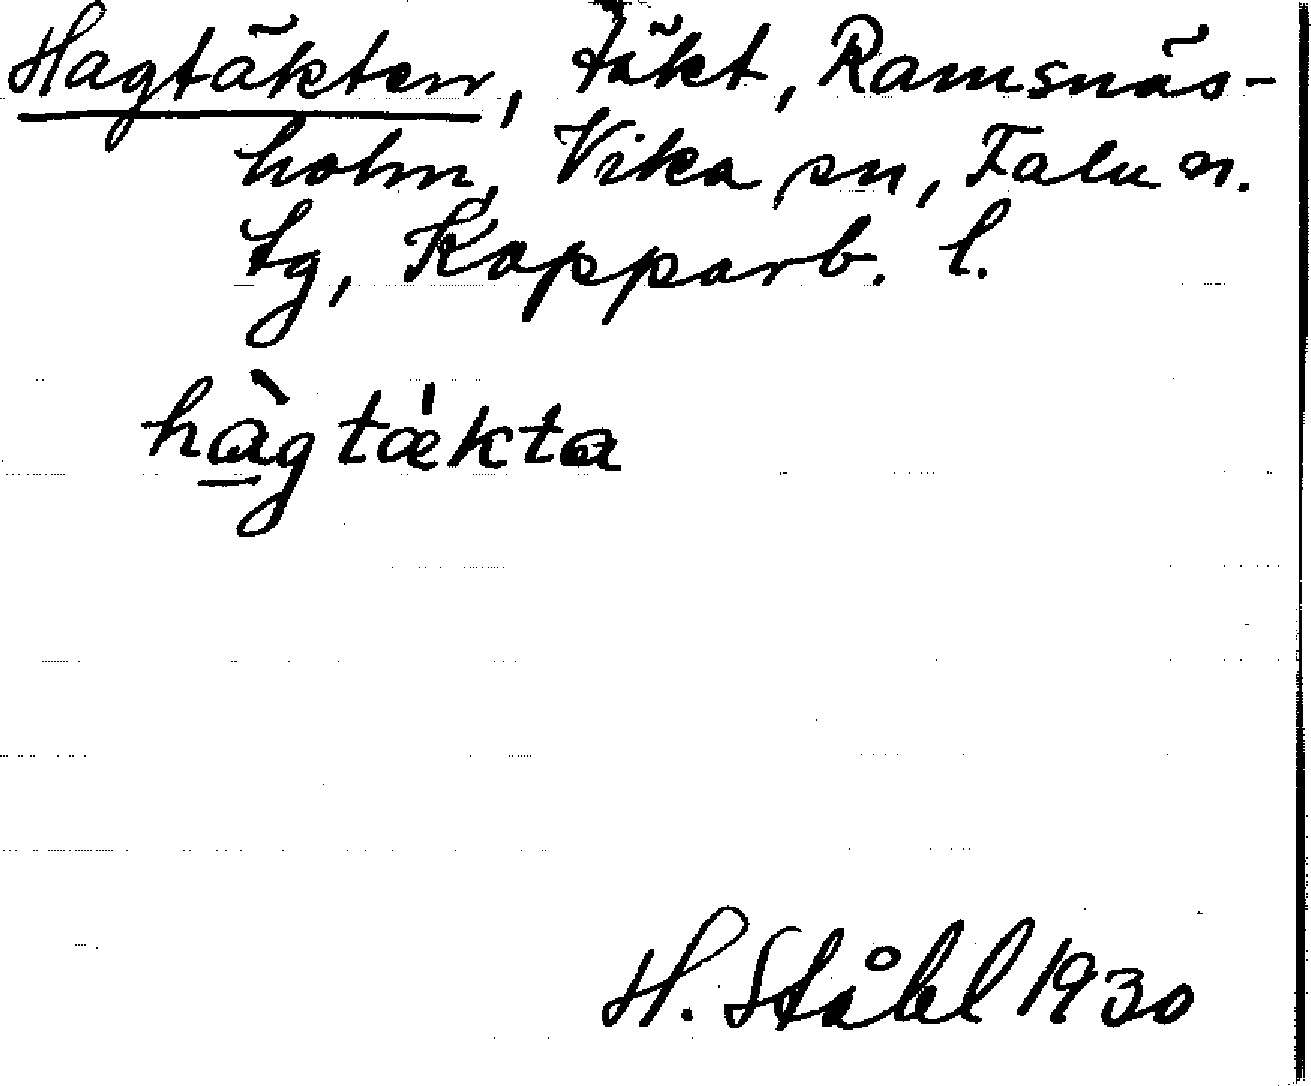 Hagtäkten, täkt, Ramsnäs-
holm, Vika sn, Falu n.
tg, Kopparb. l.
hàgtækta
H. Ståhl 1930